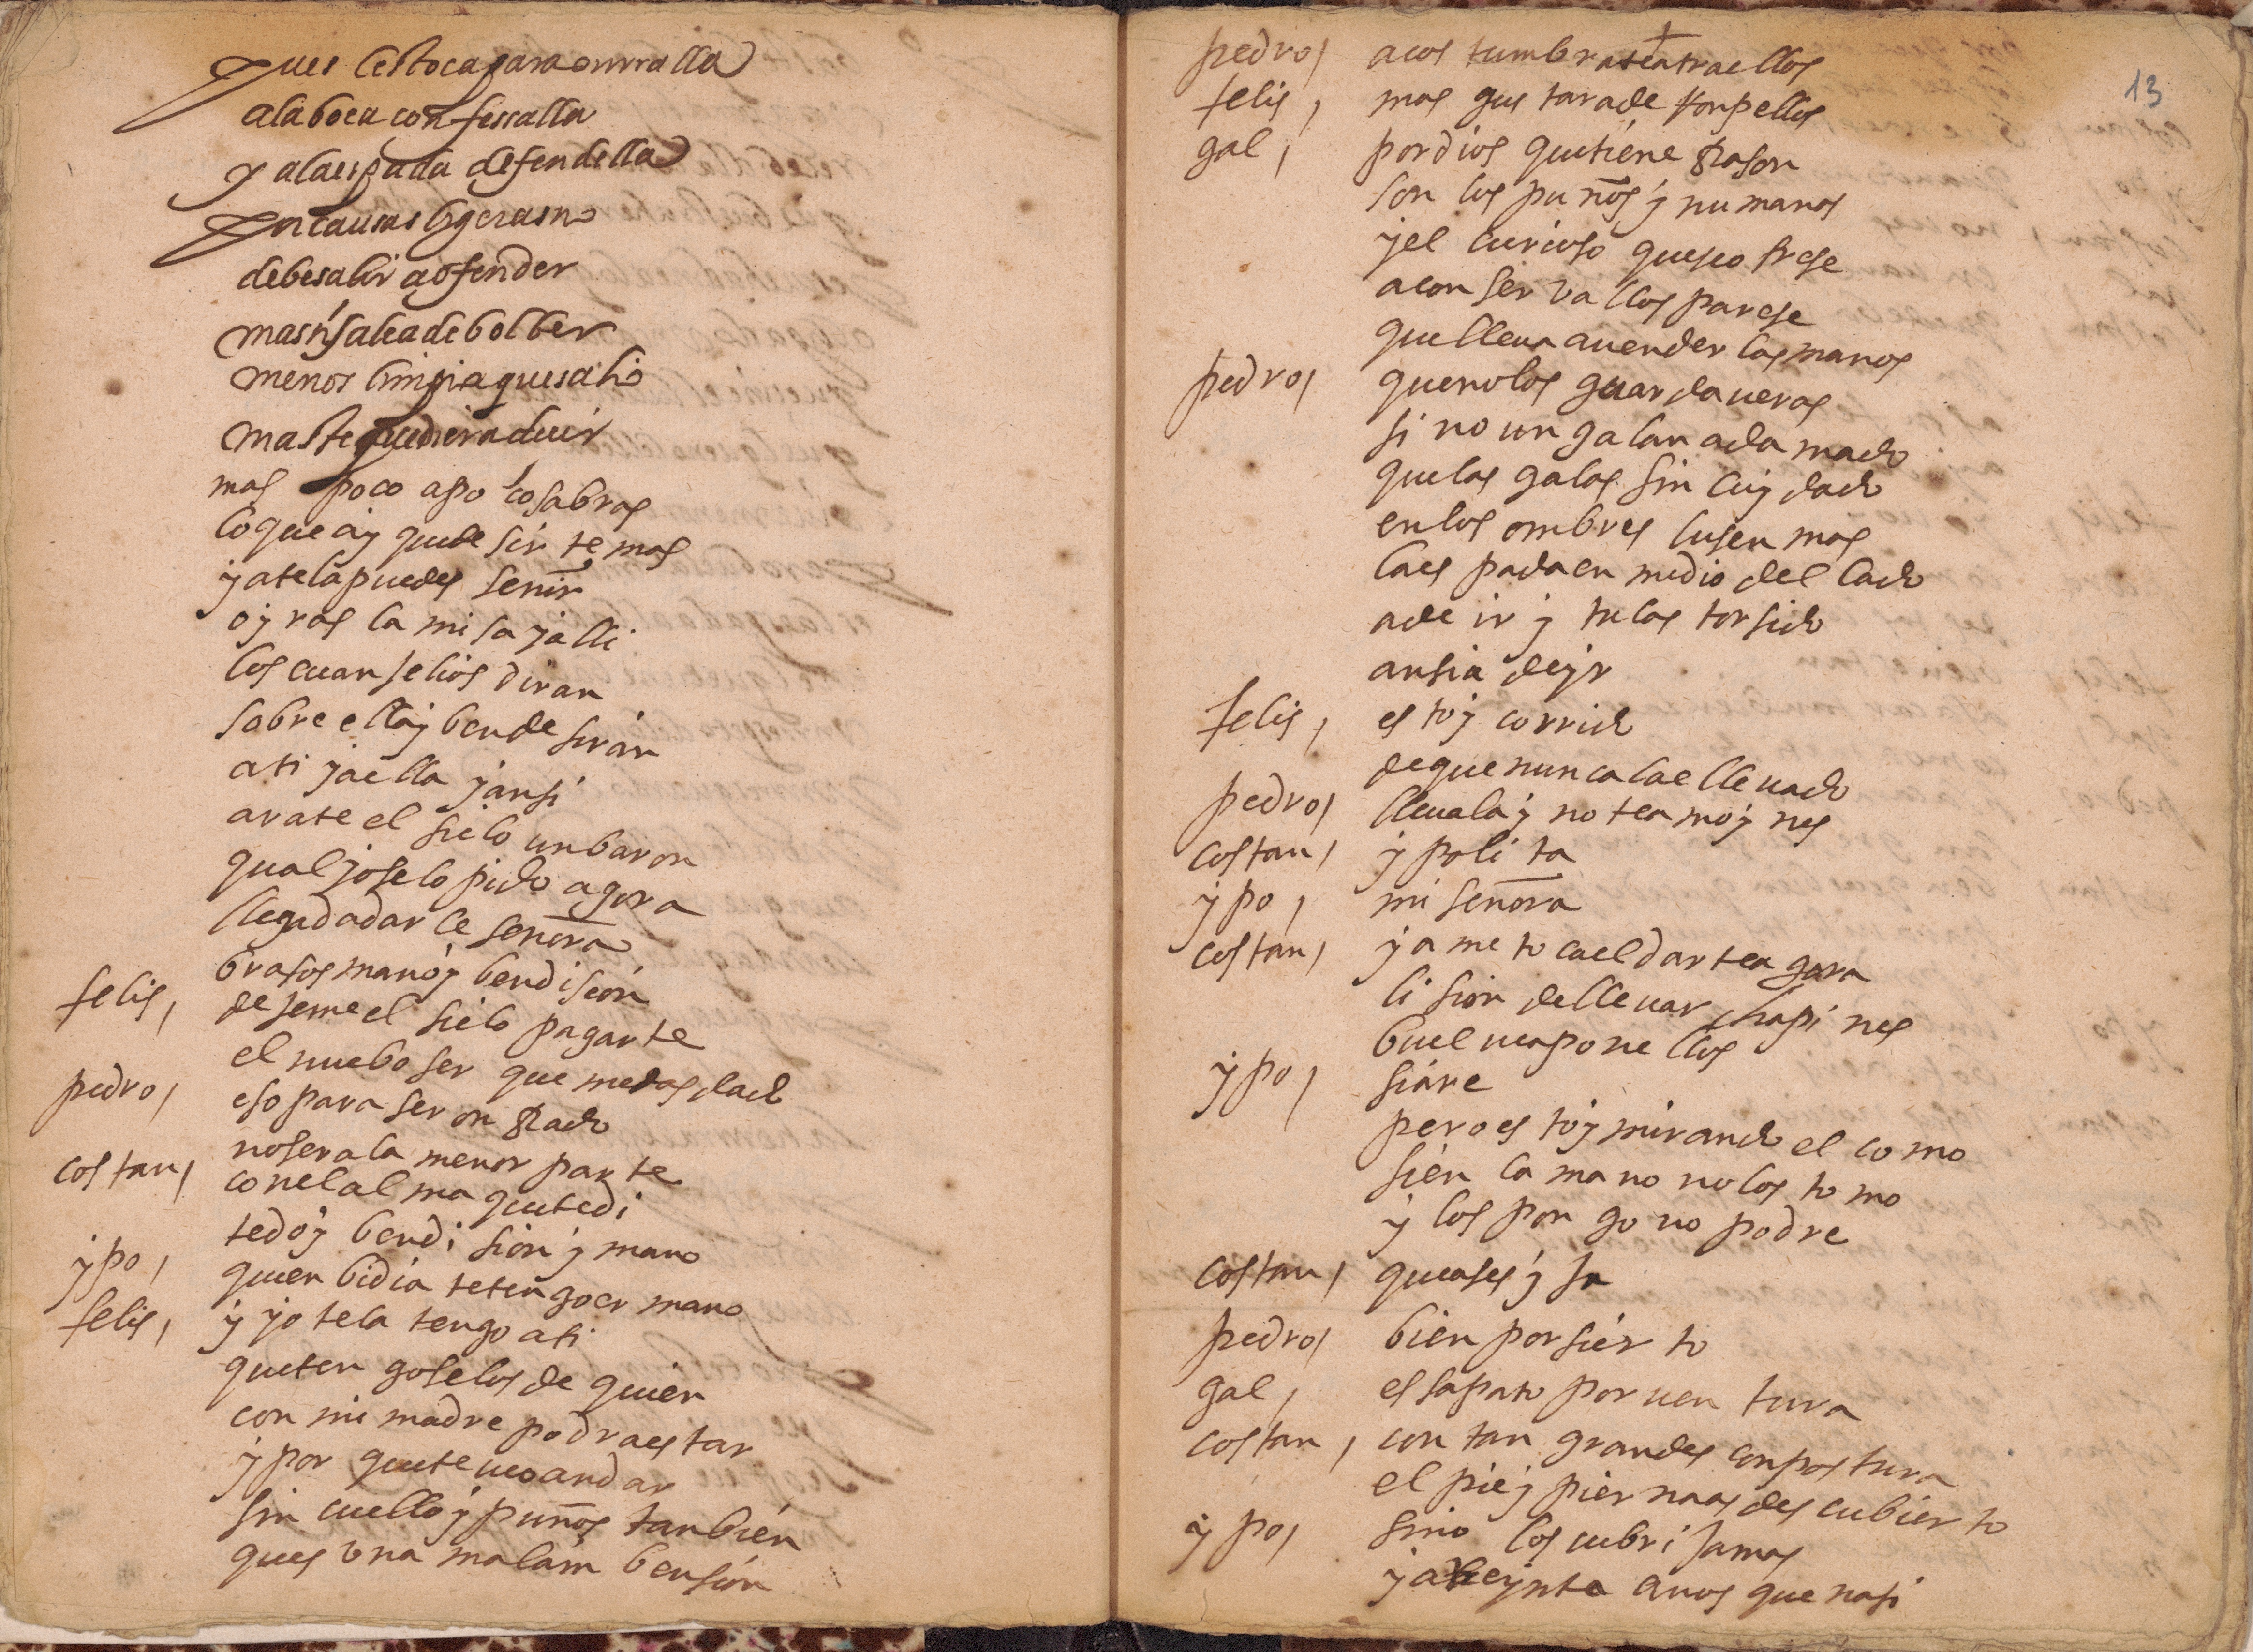 pues le toca para onrralla
a la boca confessalla
y a la espada defendella
por causas ligeras no
debe salir a ofender
mas si sale a de bolber
menos limpia que salio
mas te pudiera decir
mas poco a poco sabras
lo que ay que desir te mas
ya te la puedes señir
oyras la misa y alli
los euanselios diran
sobre ella y bendesiran
a ti y a ella y ansi
ara te el sielo un baron
qual yo se lo pido agora
llegad a dar le señora
brasos mano y bendision
felis, deseme el sielo pagarte
el nuebo ser que me das dado
pedro, eso para ser onRado
no sera la menor parte
costan, con el alma que te di
te doy bendision y mano
ypo, que enbidia te tengo ermano
felis, y yo te la tengo a ti
que tengo selos de quien
con mi madre podra estar
y por que te ueo andar
sin cuello y puños tanbien
ques una mala inbension
13
pedro, acostumbrate a traellos
felis, mas gustara de ronpellos
gal, por dios que tiene Rason
son los puños ynumanos
y el curioso que se ofrese
a conserva llos parese
que lleua a uender las manos
pedro, que no los guarda ueras
sino un galan adamado
que las galas sin cuydado
en los ombres lusen mas
la espada en medio del lado
a de ir y tu las torsido
ansi a de yr
felis, estoy corrido
de que nunca la e lleuado
pedro, lleuala y no te amoynes
costan, ypolita
ypo, mi señora
costan, ya me toca el darte agora
lision de lleuar chapines
buelue a ponellos
ypo, si are
pero estoy mirando el como
si en la mano no los tomo
y los pongo no podre
costan, que as eysa
pedro, bien por sierto
gal, es sapato por uentura
costan, con tan grande conpostura
el pie y pierna as descubierto
ypo, si no los cubri jamas
ya beynte anos que nasi